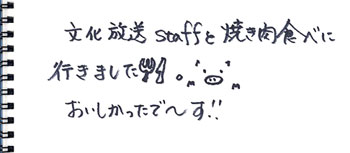 文化放送staffと焼き肉食べに
行きました🍴。
おいしかったで〜す!!